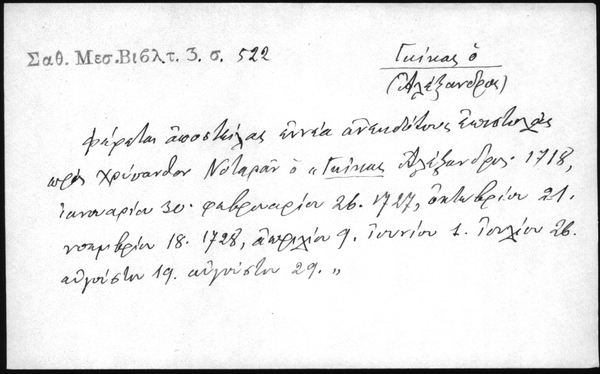 Σαθ. Μεσ. Βιβλ τ. 3. σ. 522
Γκίκας ὁ
(Ἀλέξανδρος)
φέρεται ἀποστείλας ἐννέα ἀνεκδότους ἐπιστολὰς
πρὸς Χρύσανθον Νοταρᾶν ὁ «Γκίκας Ἀλέξανδρος· 1718,
ἰαννουαρίου 30· φεβρουαρίου 26. 1727, ὀκτωβρίου 21.
νοεμβρίου 18. 1728, ἀπριλίου 9. ἰουνίου 1. ἰουλίου 26.
αὐγούστου 19. αὐγούστου 29.»